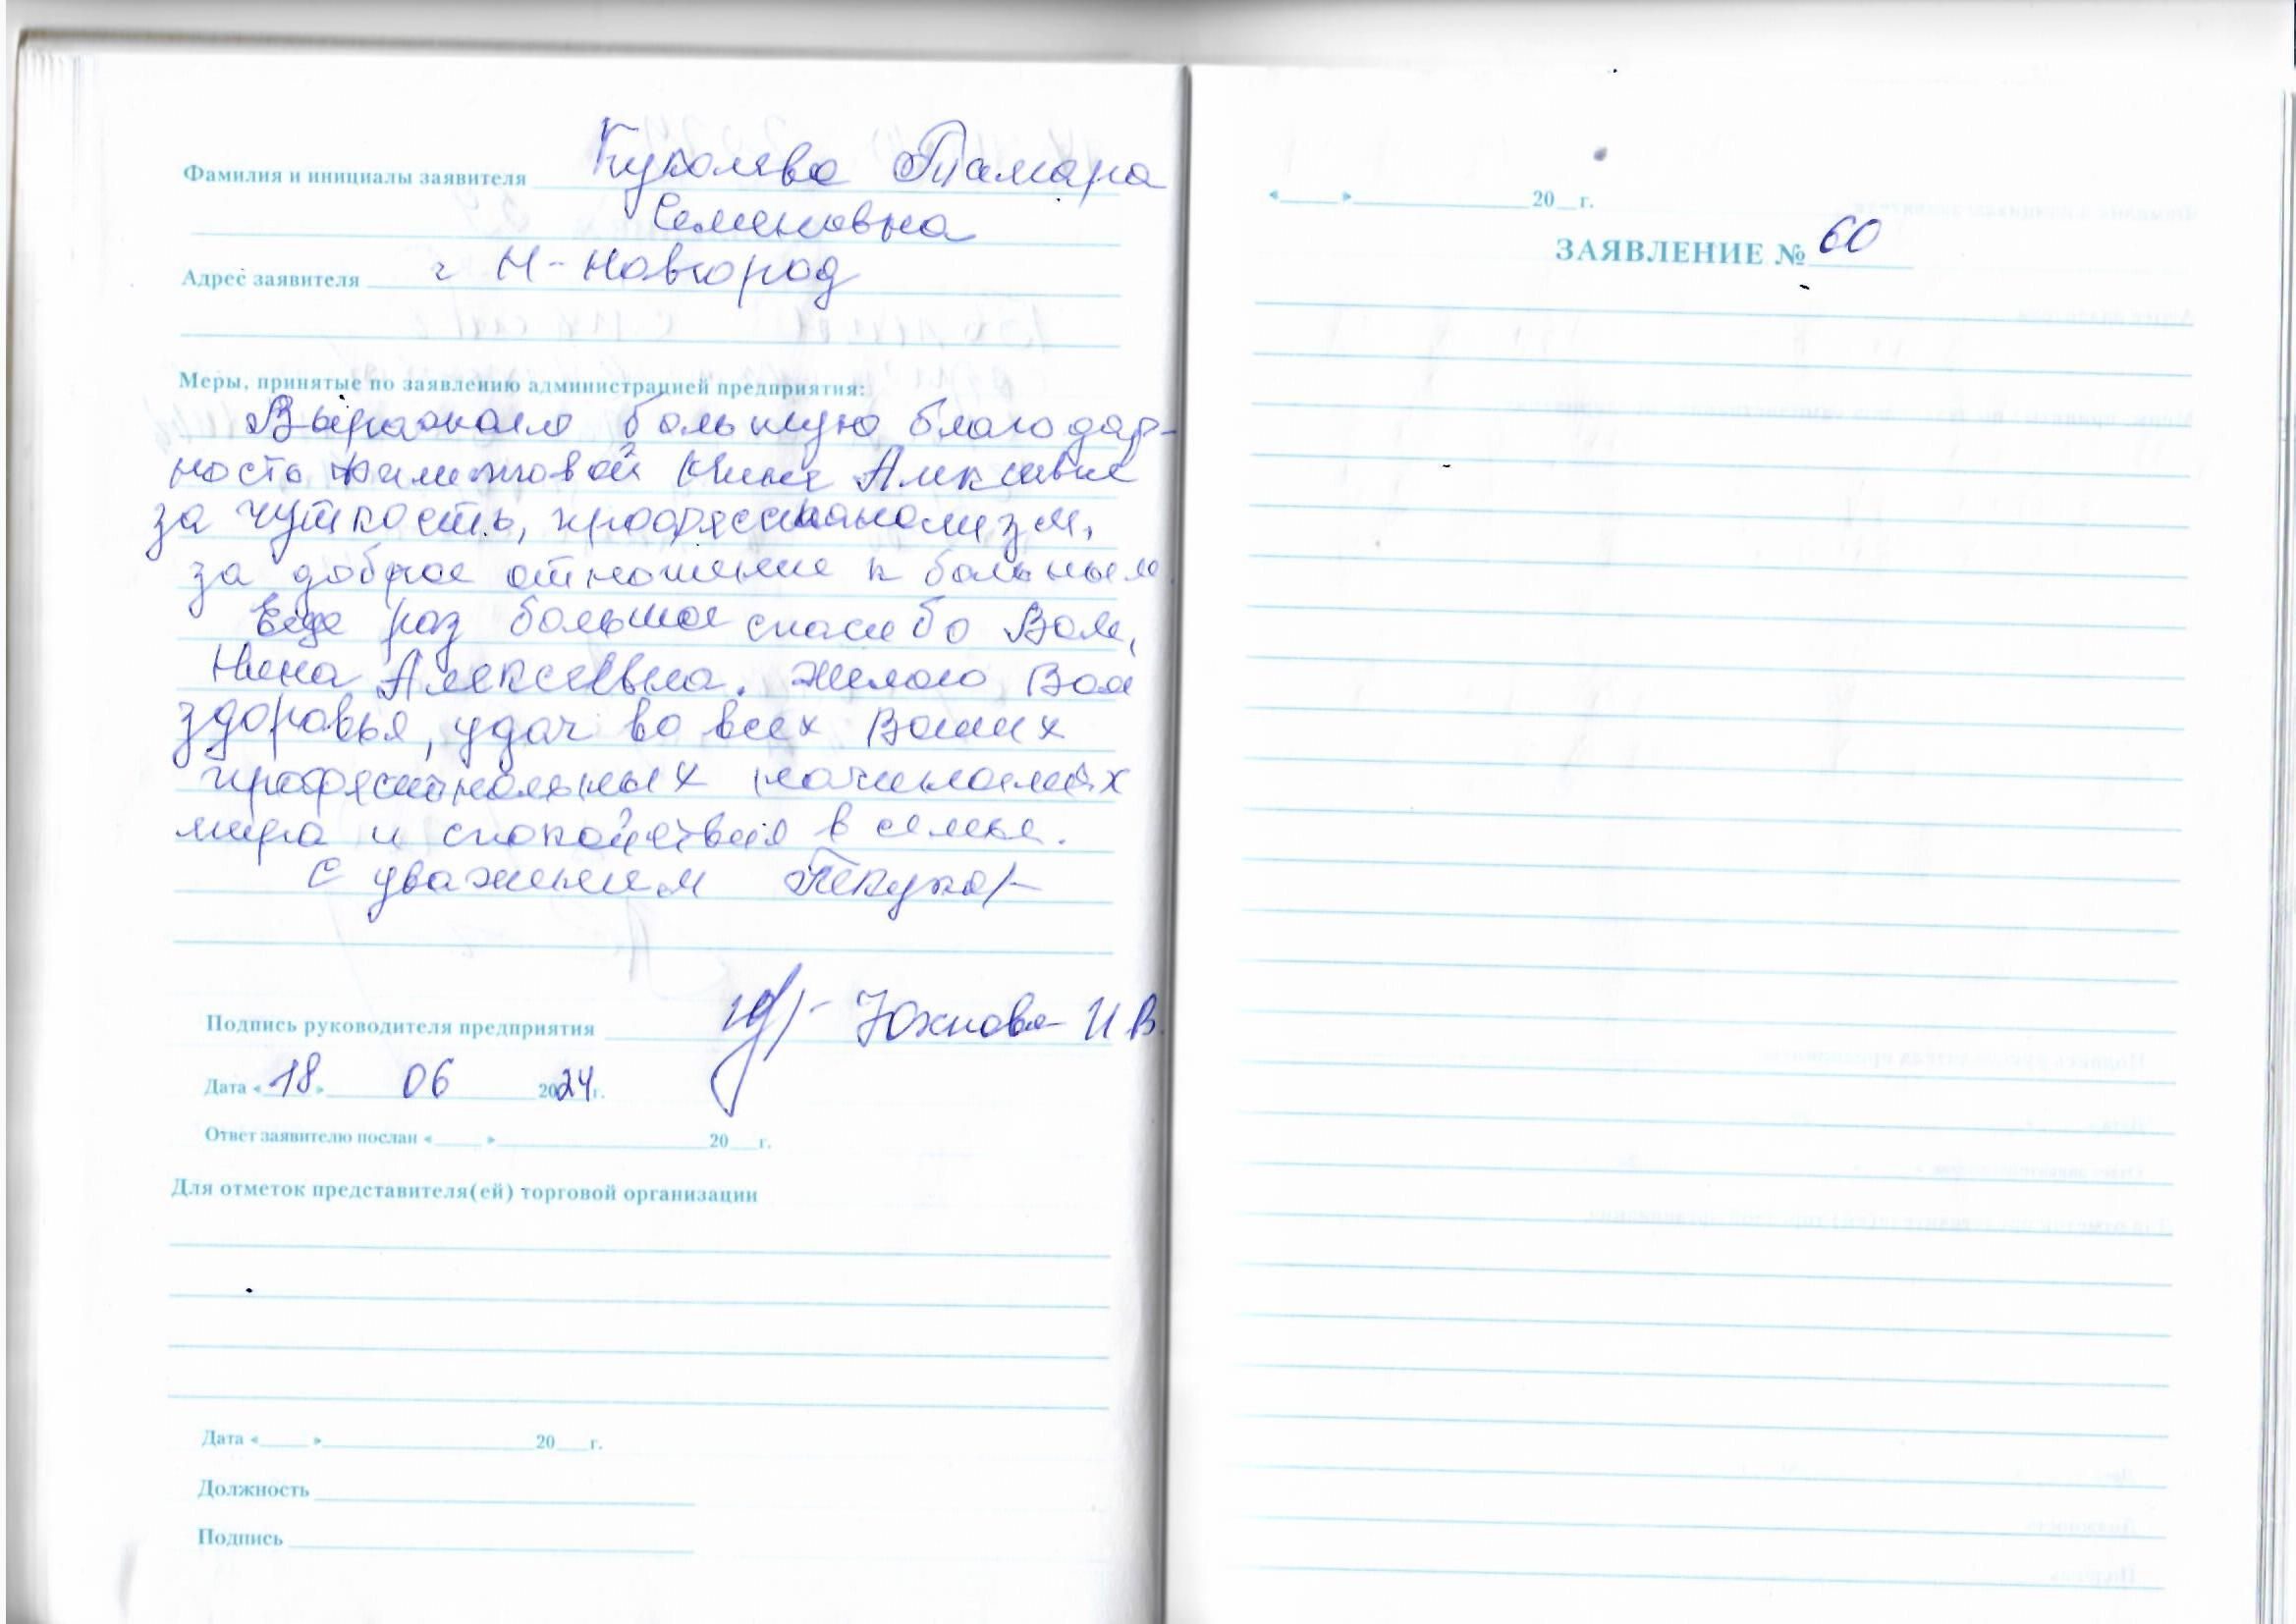 Фамилия и инициалы заявителя Куколева Тамара
Семеновна
Адрес заявителя г Н-Новгород
Меры, принятые по заявлению администрацией предприятия:
Выражаю большую благодар-
ность Нине Алексевне
за чуткость, профессианализм,
за доброе отношение к больным
Еще раз большое спасибо Вам,
Нина Алексеевна. Желаю Вам
здоровья, удач во всех Ваших
професиональных начинаниях
мира и спокойствия в семье.
С уважением
Подпись руководителя предприятия Юхнова И В.
Дата «18» 06 2024г.
Ответ заявителю послан «____» ____ 20__г.
Для отметок представителя(ей) торговой организации
Дата «____» ____ 20__г.
Должность
Подпись
«____» ____ 20__г.
ЗАЯВЛЕНИЕ № 60